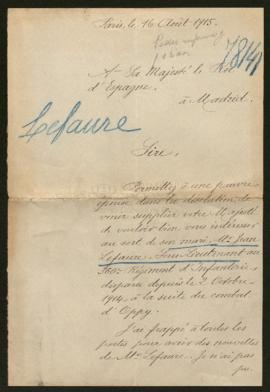 Paris, le 16 Août 1915.
7814
A Sa Majesté le Roi
d'Espagne.
à Madrid.
Lefaure
Sire,
Permettez à une pauvre
épouse dans la désolation de
venir supplier votre Majesté
de vouloir bien vous intéresser
au sort de son mari, Mr Jean
Lefaure, Sous-Lieutenant au
360e Régiment d'Infanterie
disparu depuis le 2 octobre
1914, à la suite du combat
d'Oppy.
J'ai frappé à toutes les
portes pour avoir des nouvelles
de Mr Lefaure. Je n'ai pas
pu